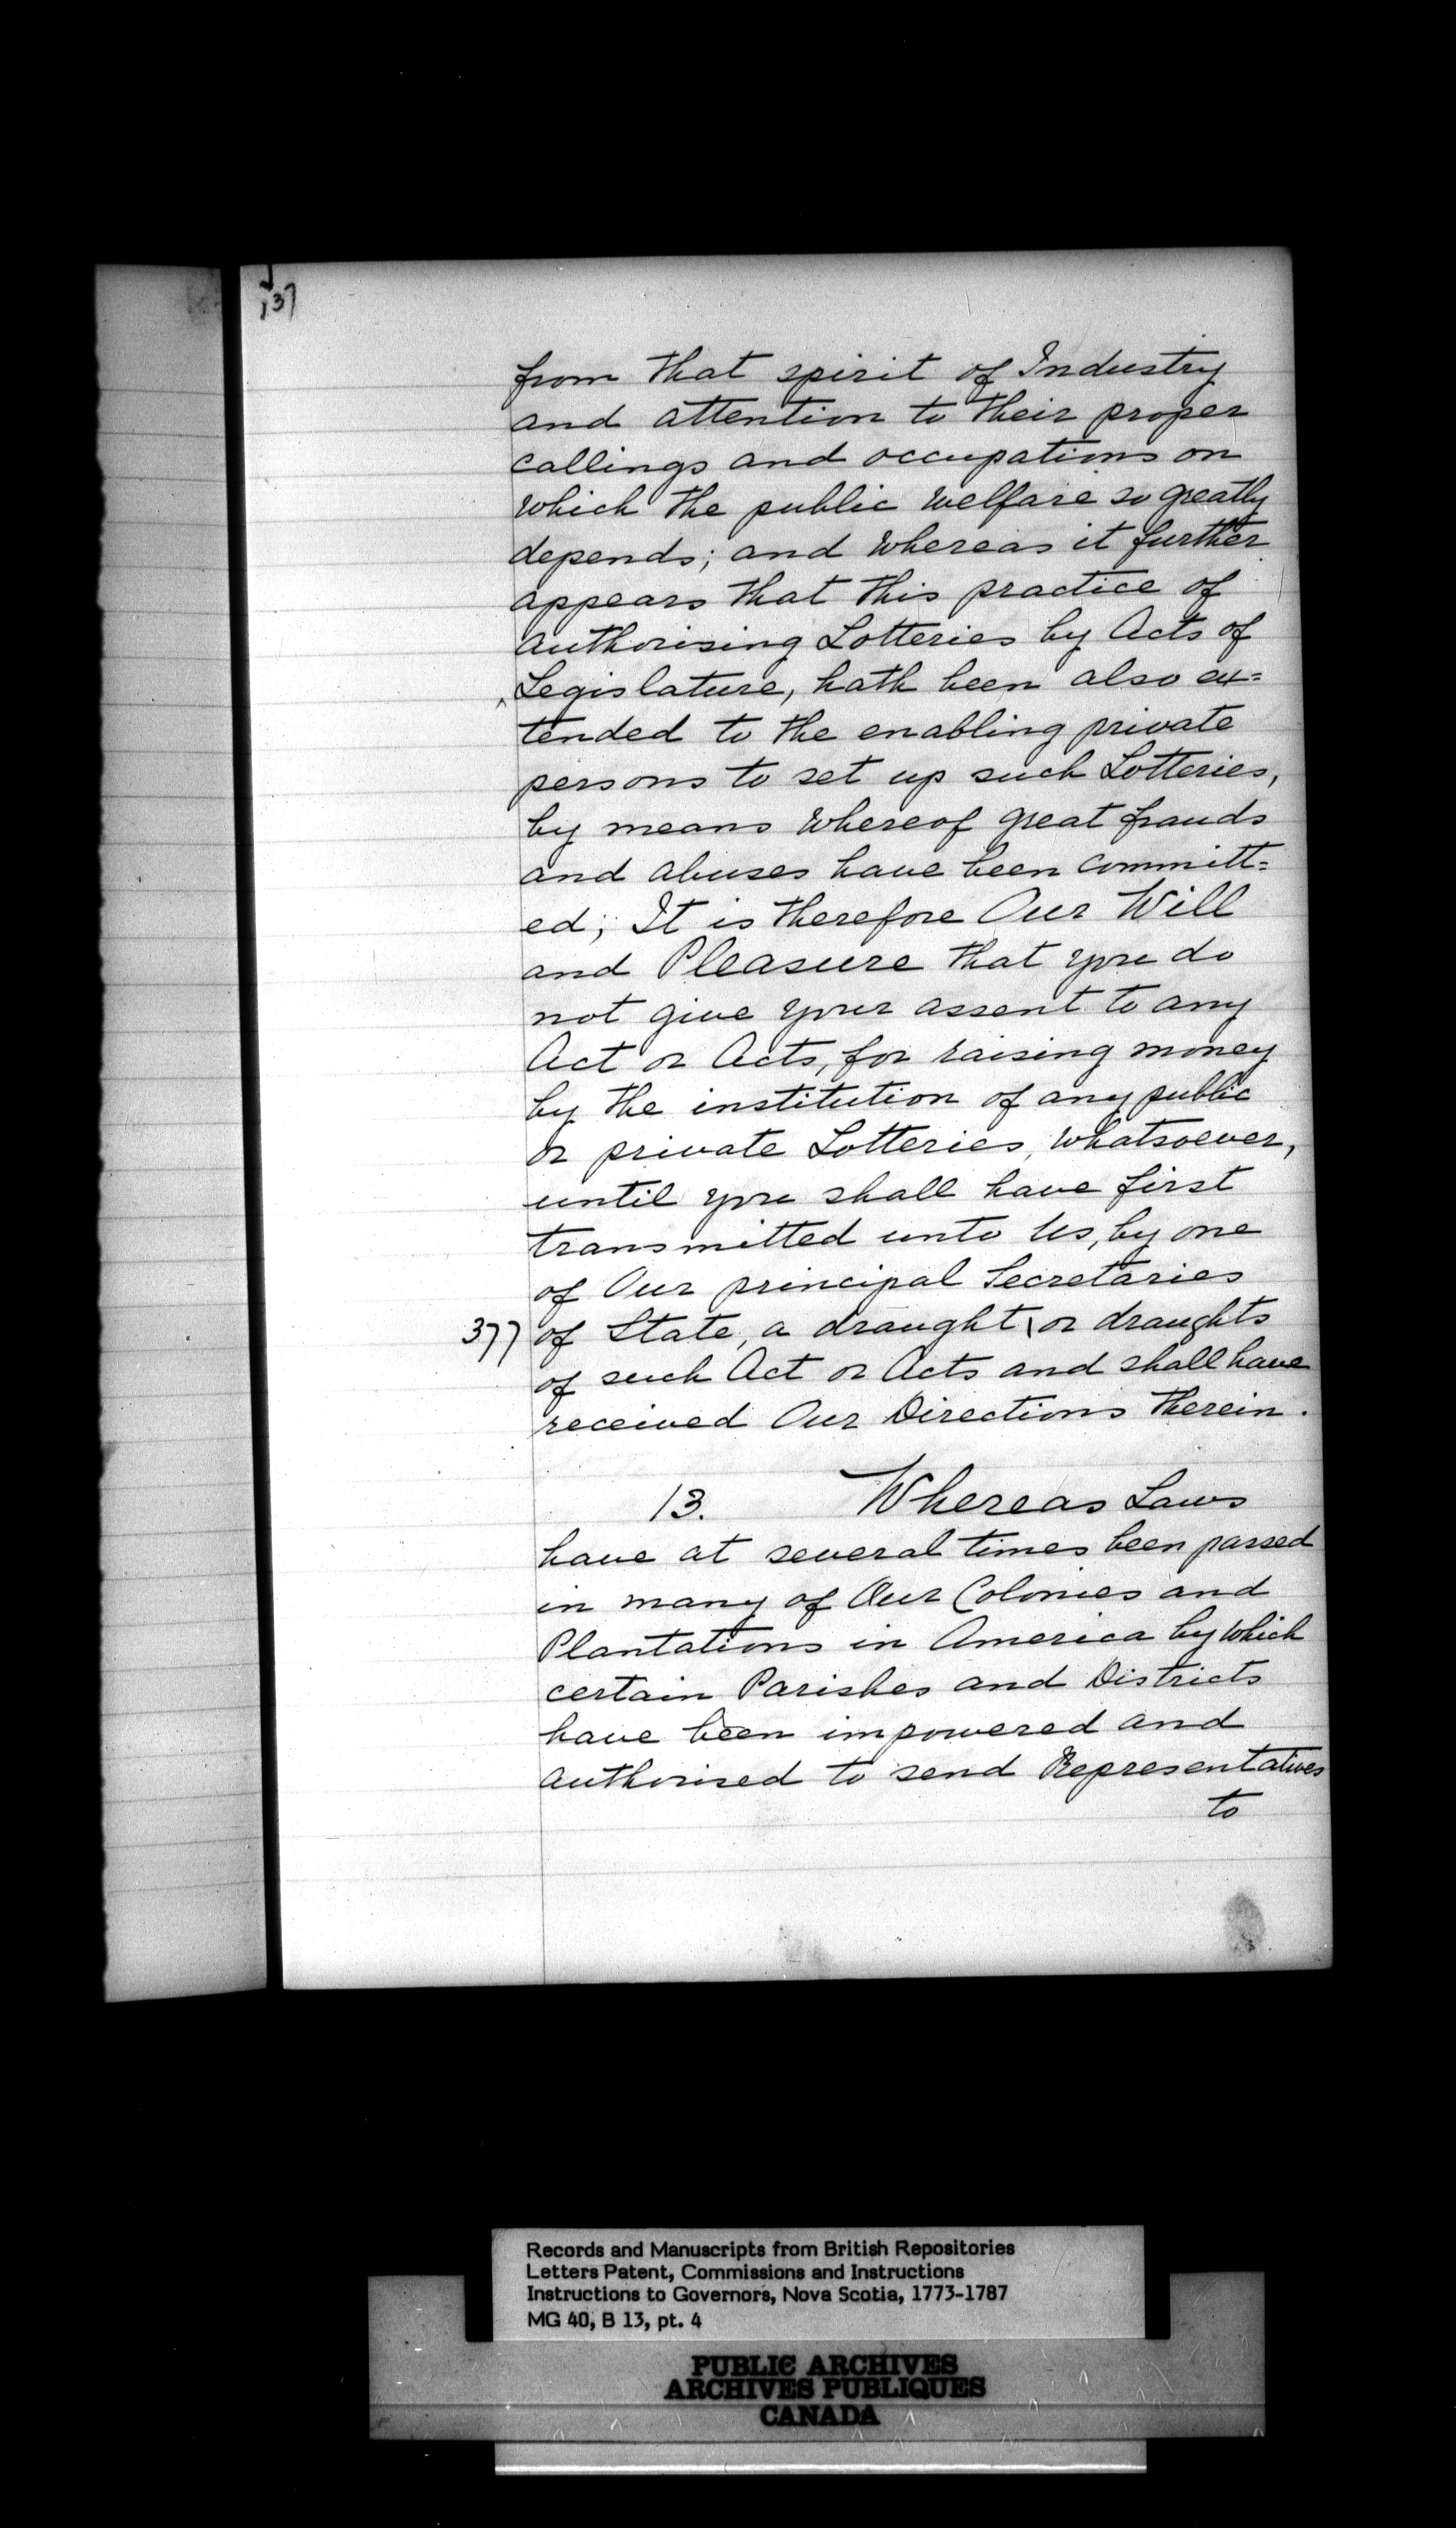 137
from that spirit of Industry
and attention to their proper
callings and occupations on
which the public welfare so greatly
depends; and whereas it further
appears that this practice of
authorising Lotteries by Acts of
Legislature, hath been also ex=
tended to the enabling private
persons to set up such Lotteries,
by means whereof great frauds
and abuses have been committ=
ed; It is therefore Our Will
and Pleasure that you do
not give your assent to any
Act or Acts, for raising money
by the institution of any public
or private Lotteries, whatsoever,
until you shall have first
transmitted unto Us, by one
of Our principal Secretaries
377 of State, a draught \ or draughts
of such Act or Acts and shall have
received Our Directions therein.
13. Whereas Laws
have at several times been passed
in many of Our Colonies and
Plantations in America by which
certain Parishes and Districts
have been impowered and
authorised to send Representatives
to
Records and Manuscripts from British Repositories
Letters Patent, Commissions and Instructions
Instructions to Governors, Nova Scotia, 1773-1787
MG 40, B 13, pt. 4
PUBLIC ARCHIVES
ARCHIVES PUBLIQUES
CANADA